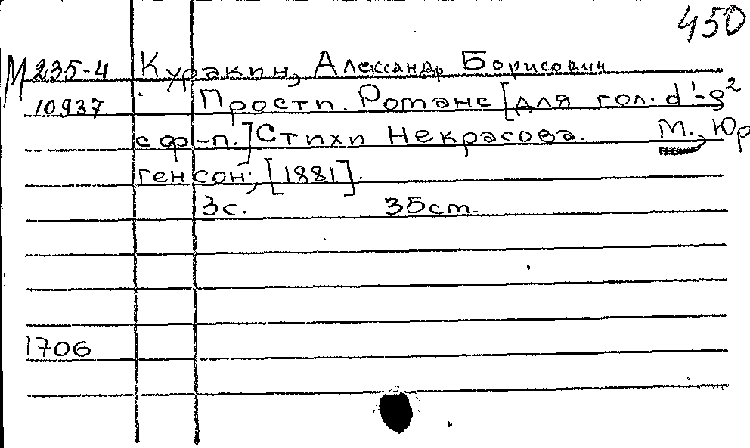 450
М 235-4 Куракин, Александр Борисович
10937 Прости. Романс [для гол. d¹-g²
с ф-п.] Стихи Некрасова. М., Юр
генсон, [1881].
3с. 35см.
1706